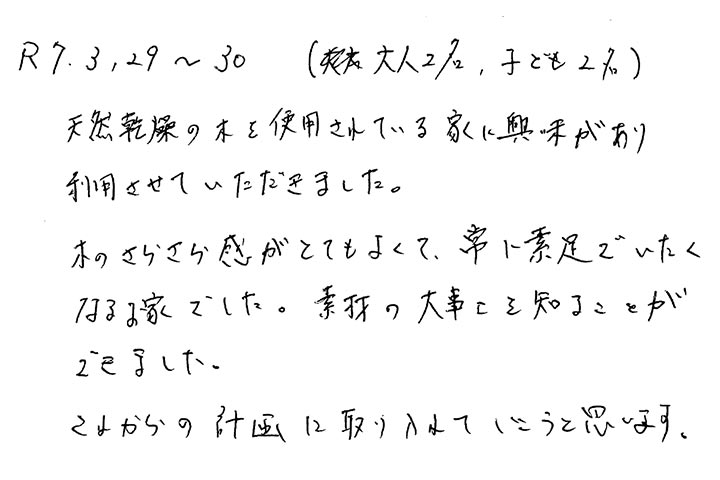 R7.3,29〜30 (大人2名,子ども2名)
天然乾燥の木を使用されている家に興味があり
利用させていただきました。
木のさらさら感がとてもよくて、常に素足でいたく
なるお家でした。素材の大事さを知ることが
できました。
これからの計画に取り入れていこうと思います。